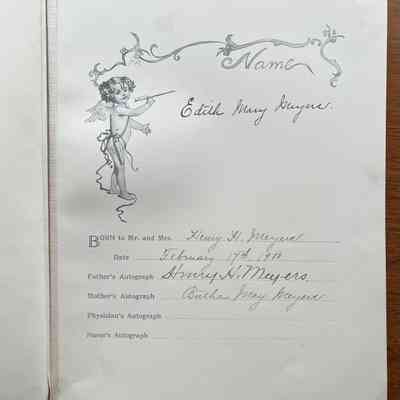 Name
Edith Mary Meyers.
BORN to Mr. and Mrs. Henry H. Meyers
Date February 17th,
Father's Autograph Henry H. Meyers
Mother's Autograph May Meyers
Physician's Autograph
Nurse's Autograph